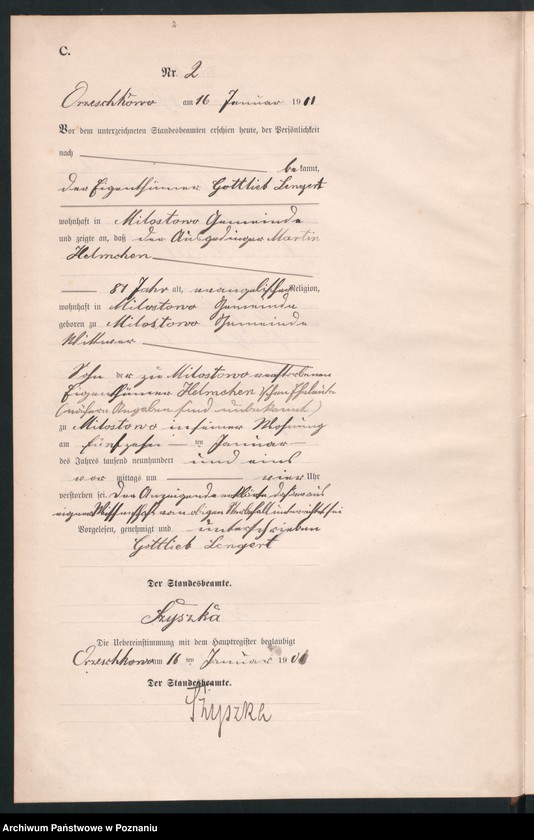 2
C.
Nr. 2
Orzeschkowo am 16 Januar 1901
Vor dem unterzeichneten Standesbeamten erschien heute, der Persönlichkeit
nach
bekannt,
der Eigenthümer Gottlieb Lengert
wohnhaft in Milostowo Gemeinde
und zeigte an, daß der Ausgedinger Martin
Helmchen
81 Jahr alt, evangelischer Religion,
wohnhaft in Milostowo Gemeinde
geboren zu Milostowo Gemeinde
Wittwer
Sohn der zu Milostowo verstorbenen
Eigenthümer Helmchen'schen Eheleute
(nähere Angaben sind unbekannt)
zu Milostowo in seiner Wohnung
am fünfzehn ten Januar
des Jahres tausend neunhundert und eins
vor mittags um vier Uhr
verstorben sei. Der Anzeigende erklärte daß er aus
eigener Wissenschaft von obigen Sterbefall unterrichtet sei
Vorgelesen, genehmigt und unterschrieben
Gottlieb Lengert
Der Standesbeamte.
Szyszka
Die Uebereinstimmung mit dem Hauptregister beglaubigt
Orzeschkowo am 16 ten Januar 1901
Der Standesbeamte.
Szyszka
Archiwum Państwowe w Poznaniu